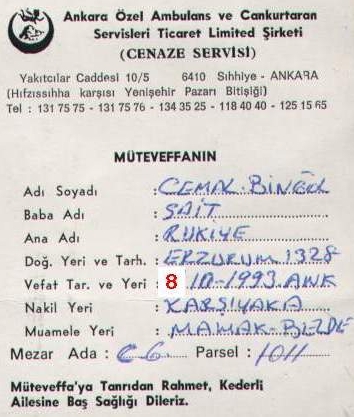 Ankara Özel Ambulans ve Cankurtaran
Servisleri Ticaret Limited Şirketi
(CENAZE SERVİSİ)
Yakıtcılar Caddesi 10/5 6410 Sıhhiye - ANKARA
(Hıfzıssıhha karşısı Yenişehir Pazarı Bitişiği)
Tel : 131 75 75 - 131 76 76 - 134 35 25 - 118 40 40 - 125 15 65
MÜTEVEFFANIN
Adı Soyadı : CEMAL BİNGÖL
Baba Adı : SAİT
Ana Adı : RUKİYE
Doğ. Yeri ve Tarh. : ERZURUM 1328
Vefat Tar. ve Yeri : 8 10-1993 ANK
Nakil Yeri : KARŞIYAKA
Muamele Yeri : MAMAK-BİZDE
Mezar Ada : C6 Parsel : 1011
Müteveffa'ya Tanrıdan Rahmet, Kederli
Ailesine Baş Sağlığı Dileriz.